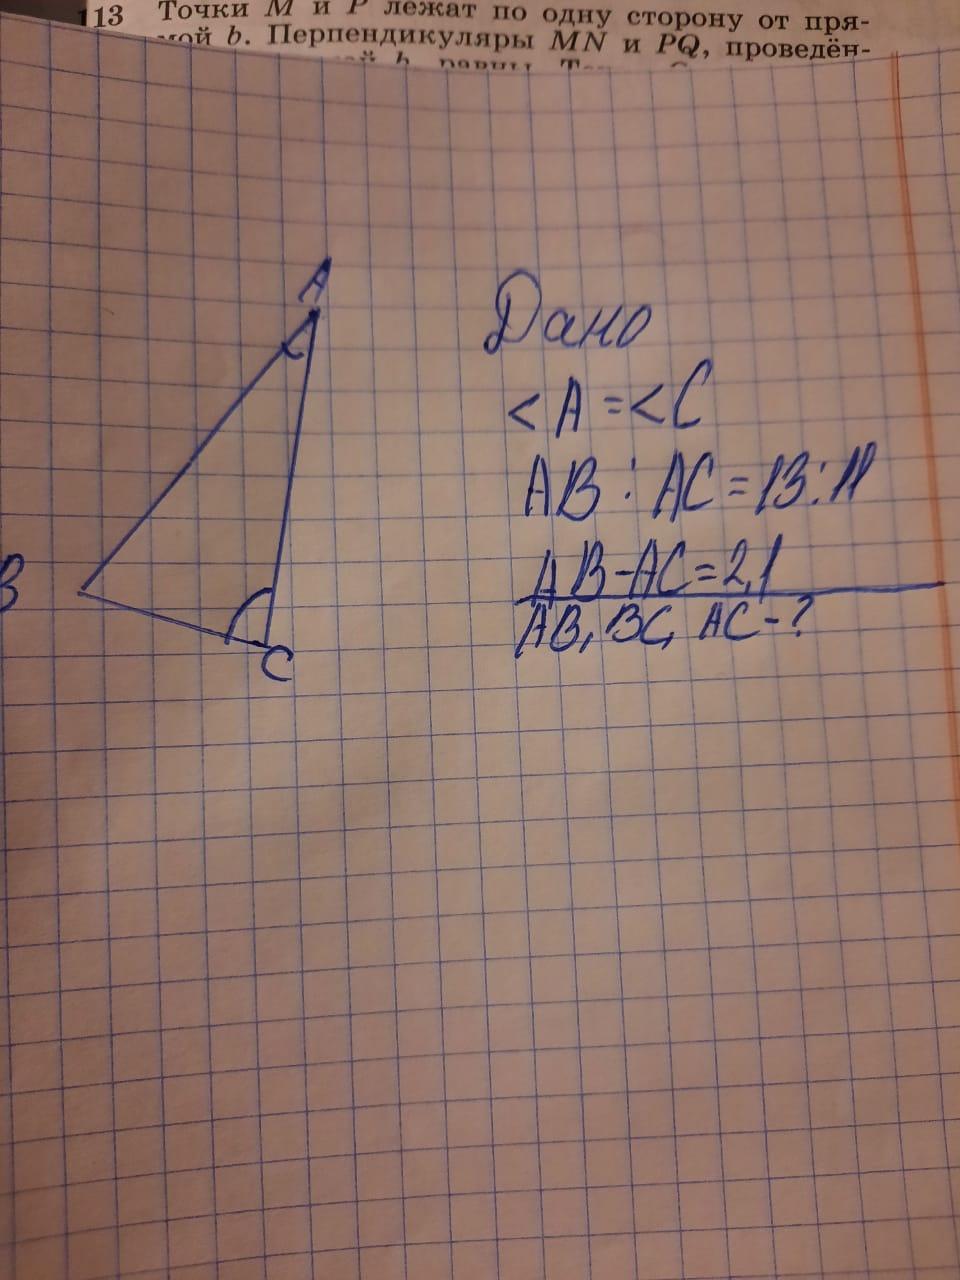 113 Точки M и P лежат по одну сторону от пря-
мой b. Перпендикуляры MN и PQ, проведён-
b, равны.
A
B
C
Дано
<A=<C
AB:AC=13:11
AB-AC=2,1
AB, BC, AC-?